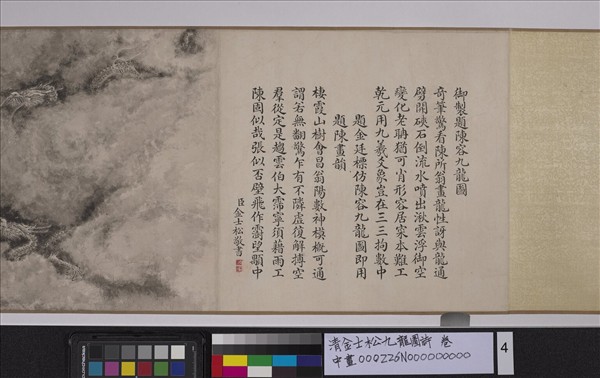 御製題陳容九龍圖
奇筆驚看陳所翁畫龍性訝與龍通
劈開硤石倒流水噴出湫雲浮御空
變化老聃猶可肖形容居寀本難工
乾元用九羲爻象豈在三三拘數中
題金廷標仿陳容九龍圖即用
題陳畫韻
棲霞山樹會昌翁陽數神模概可通
謂若無翻驚乍有不隣虛復解摶空
羣從定是趨雲伯大霈寧須藉雨工
陳固似哉張似否壁飛作望顒中
臣金士松敬書
清金士松九龍圖詩 卷
中畫000226N000000000
4